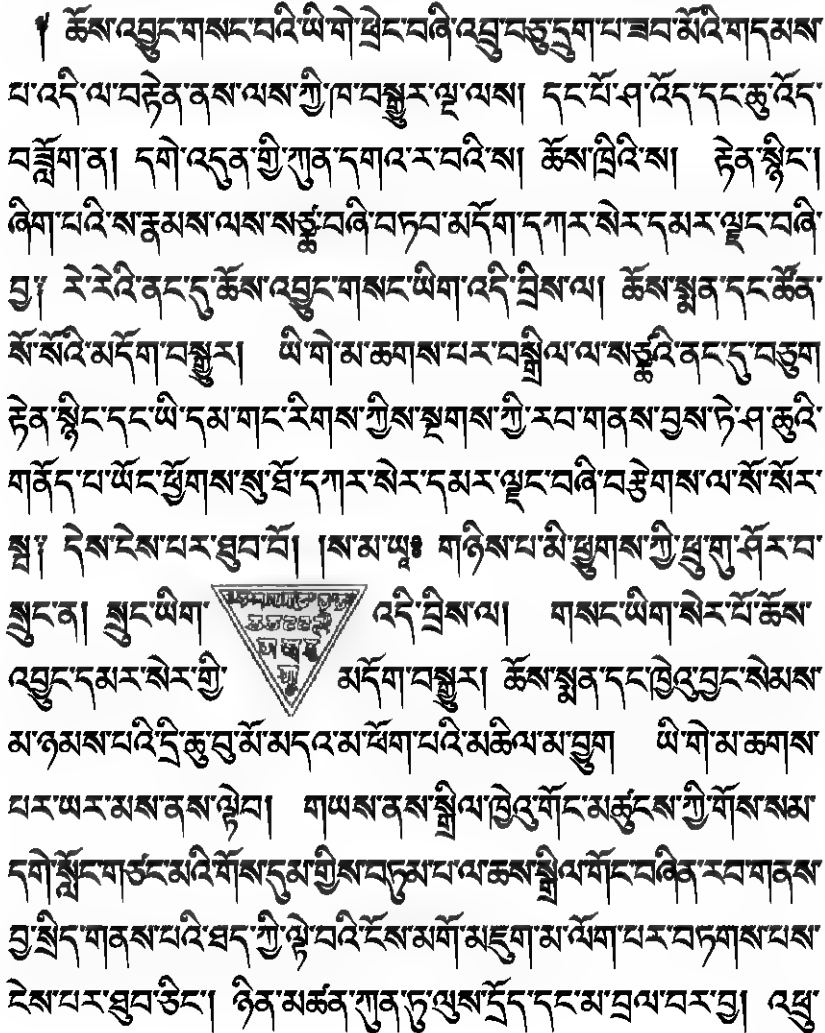 ༈ ཆོས་འབྱུང་གསང་བའི་ཡི་གེ་ཕྲེང་བཞི་འབྲུ་བཅུ་དྲུག་པ་ཟབ་མོའི་གདམས་
པ་འདི་ལ་བརྟེན་ནས་ལས་ཀྱི་ཁ་བསྒྱུར་ལྔ་ལས། དང་པོ་ཤ་འོད་དང་ཆུ་འོད་
བཟློག་ན། དགེ་འདུན་གྱི་ཀུན་དགའ་ར་བའི་ས། ཆོས་ཁྲིའི་ས། རྟེན་སྙིང་།
ཞིག་པའི་ས་རྣམས་ལས་སཙྪ་བཞི་བཏབ་མདོག་དཀར་སེར་དམར་ལྗང་བཞི་
བྱ༔ རེ་རེའི་ནང་དུ་ཆོས་འབྱུང་གསང་ཡིག་འདི་བྲིས་ལ། ཆོས་སྨན་དང་ཚོན་
སོ་སོའི་མདོག་བསྒྱུར། ཡི་གེ་མ་ཆགས་པར་བསྒྲིལ་ལ་སཙྪའི་ནང་དུ་བཅུག
རྟེན་སྙིང་དང་ཡི་དམ་གང་རིགས་ཀྱིས་སྔགས་ཀྱི་རབ་གནས་བྱས་ཏེ་ཤ་ཆུའི་
གནོད་པ་ཡོང་ཕྱོགས་སུ་ཐོ་དཀར་སེར་དམར་ལྗང་བཞི་བརྩེགས་ལ་སོ་སོར་
སྦ༔ དེས་ངེས་པར་ཐུབ་བོ། །ས་མ་ཡཱ༔ གཉིས་པ་མི་ཕྱུགས་ཀྱི་ཕྲུ་གུ་ཤོར་བ་
སྲུང་ན། སྲུང་ཡིག་ འདི་བྲིས་ལ། གསང་ཡིག་སེར་པོ་ཆོས་
འབྱུང་དམར་སེར་གྱི་ མདོག་བསྒྱུར། ཆོས་སྨན་དང་ཁྱེའུ་བྱང་སེམས་
མ་ཉམས་པའི་དྲི་ཆུ་བུ་མོ་མདའ་མ་ཕོག་པའི་མཆིལ་མ་བྱུག ཡི་གེ་མ་ཆགས་
པར་ཡར་མས་ནས་ལྟེབ། གཡས་ནས་སྒྲིལ་ཁྱེའུ་གོང་མཚུངས་ཀྱི་གོས་སམ་
དགེ་སློང་གཙང་མའི་གོས་དུམ་གྱིས་བཏུམ་པ་ལ་ཆས་སྒྲིལ་གོང་བཞིན་རབ་གནས་
བྱ་སྲིད་གནས་པའི་ཐད་ཀྱི་ལྟེ་བའི་ངོས་མགོ་མཇུག་མ་ལོག་པར་བཏགས་པས་
ངེས་པར་ཐུབ་ཅིང་། ཉིན་མཚན་ཀུན་ཏུ་ལུས་དྲོད་དང་མ་བྲལ་བར་བྱ། འཕྲུ་